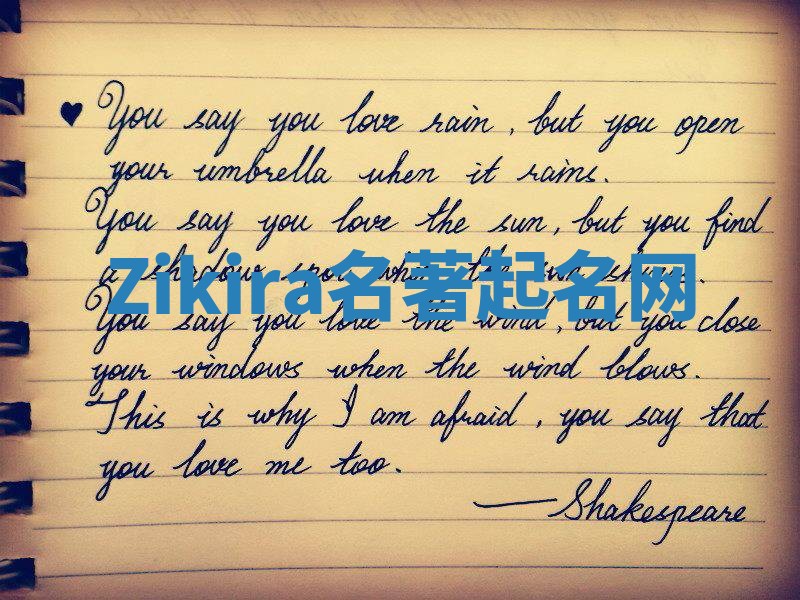 ♥ You say you love rain, but you open
your umbrella when it rains.
You say you love the sun, but you find
a shadow spot when the sun shines.
Zikira名著起名网
You say you love the wind, but you close
your windows when the wind blows.
This is why I am afraid, you say that
you love me too.
—Shakespeare